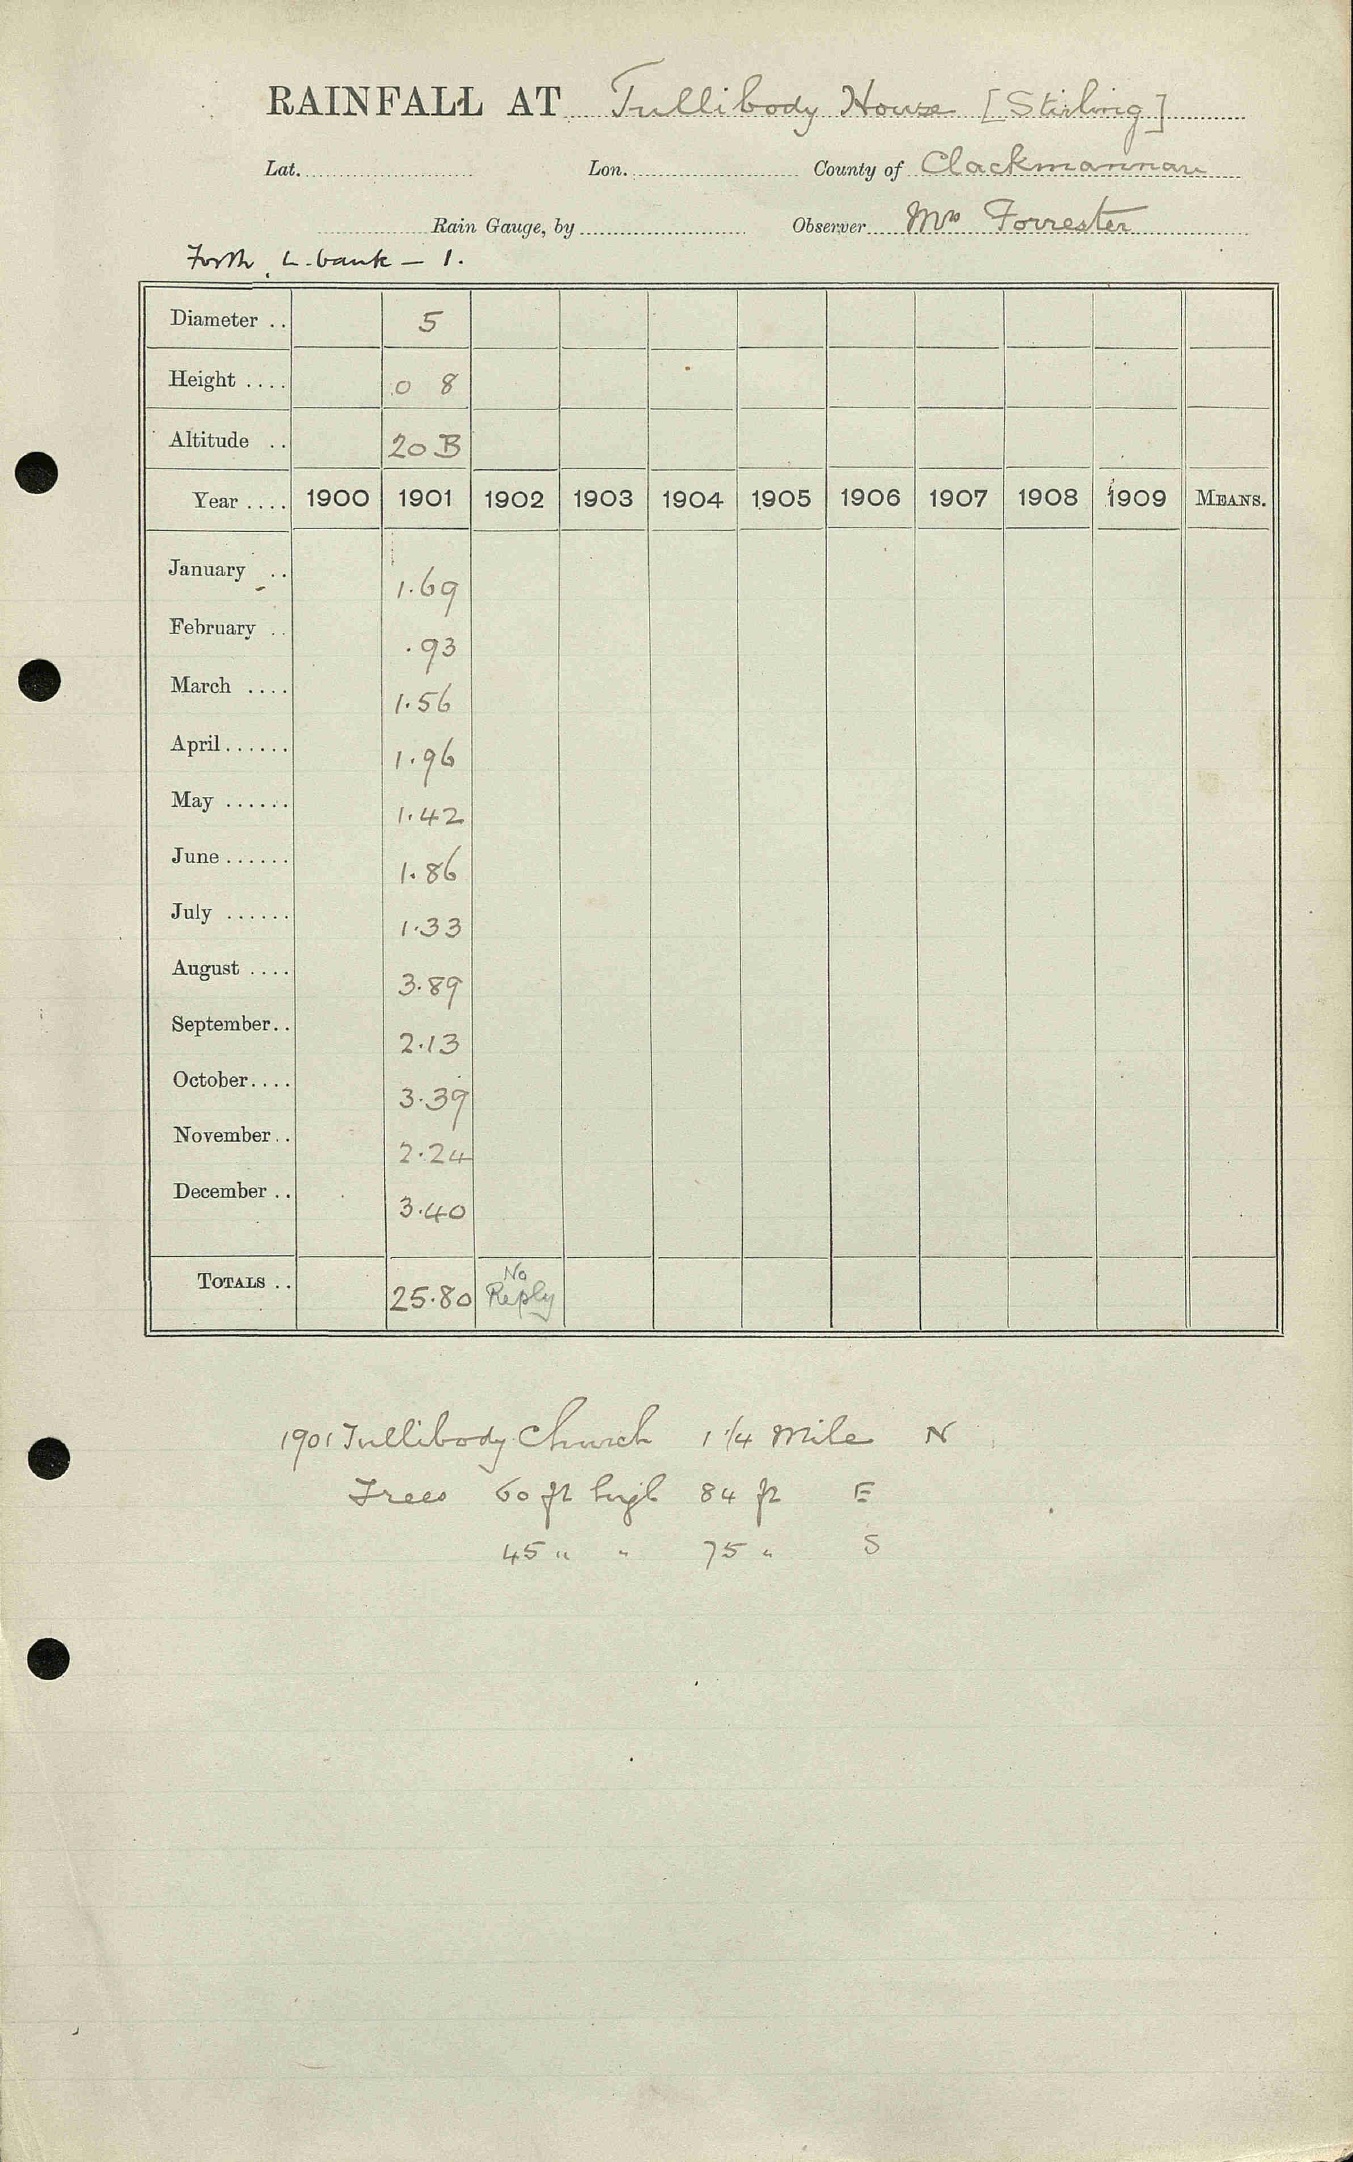 RAINFALL AT Tullibody House [Stirling]
Lat. Lon. County of Clackmannan
Rain Gauge, by Observer Mrs Forrester
Forth, L. bank — 1.
Diameter .. 5
Height .... 0 8
Altitude .. 20 B
Year .... 1900 1901 1902 1903 1904 1905 1906 1907 1908 1909 MEANS.
January .. 1.69
February .. .93
March .... 1.56
April ...... 1.96
May ...... 1.42
June ...... 1.86
July ...... 1.33
August .... 3.89
September.. 2.13
October.... 3.39
November.. 2.24
December .. 3.40
TOTALS .. 25.80 No Reply
1901 Tullibody Church 1 1/4 Mile N
Trees 60 ft high 84 ft E
45 " " 75 " S